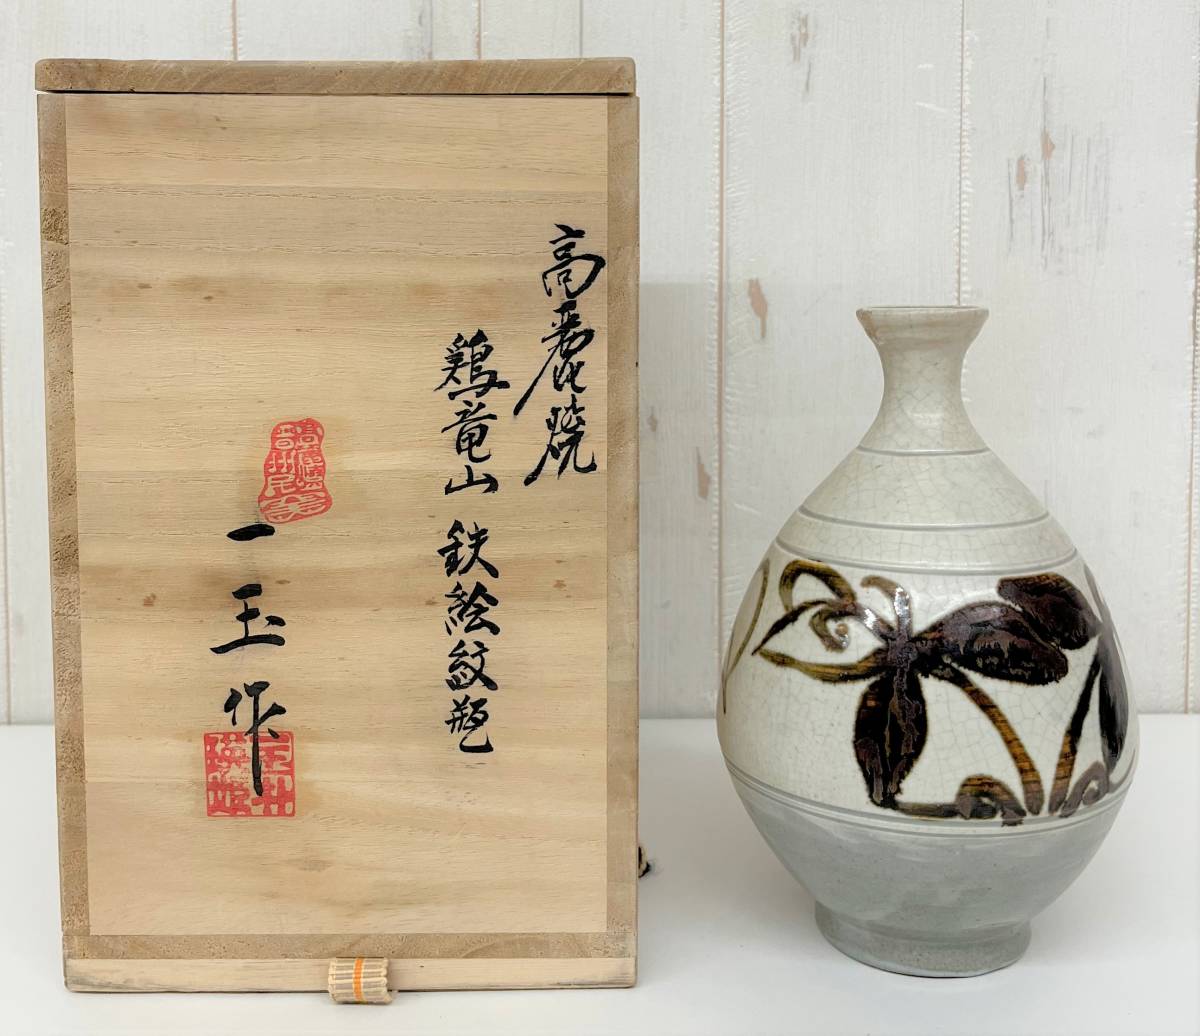 高麗焼
鶏竜山 鉄絵紋瓶
一玉作